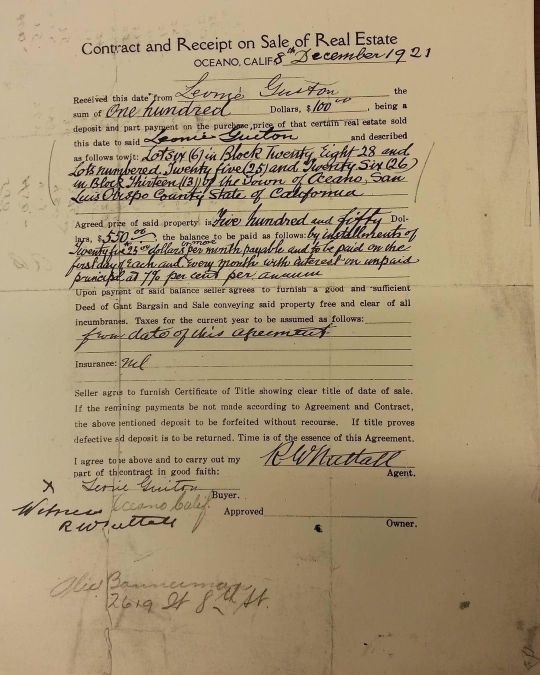 Contract and Receipt on Sale of Real Estate
OCEANO, CALIF. 8th December 1921
Received this date from Leonie Guiton the
sum of One hundred Dollars, $100.00, being a
deposit and part payment on the purchase price of that certain real estate sold
this date to said Leonie Guiton and described
as follows towjt: Lot Six (6) in Block Twenty Eight 28 and
Lots numbered Twenty five (25) and Twenty Six (26)
in Block Thirteen (13) of the Town of Oceano, San
Luis Obispo County State of California
Agreed price of said property is Five hundred and fifty Dol-
lars, $550.00 the balance to be paid as follows: by installments of
Twenty five 25.00 dollars or more per month payable and to be paid on the
first day of each and every month with interest on unpaid
principal at 7% per cent per annum
Upon payment of said balance seller agrees to furnish a good and sufficient
Deed of Gant Bargain and Sale conveying said property free and clear of all
incumbranes. Taxes for the current year to be assumed as follows:
from date of this agreement
Insurance: nil
Seller agres to furnish Certificate of Title showing clear title of date of sale.
If the remining payments be not made according to Agreement and Contract,
the above entioned deposit to be forfeited without recourse. If title proves
defective sd deposit is to be returned. Time is of the essence of this Agreement.
I agree to be above and to carry out my
part of the contract in good faith:
R W Nuttall
Agent.
X Leonie Guiton
Buyer.
Witness Oceano Calif.
R W Nuttall
Approved
Owner.
Alex Bannerman
2619 W 8th St.